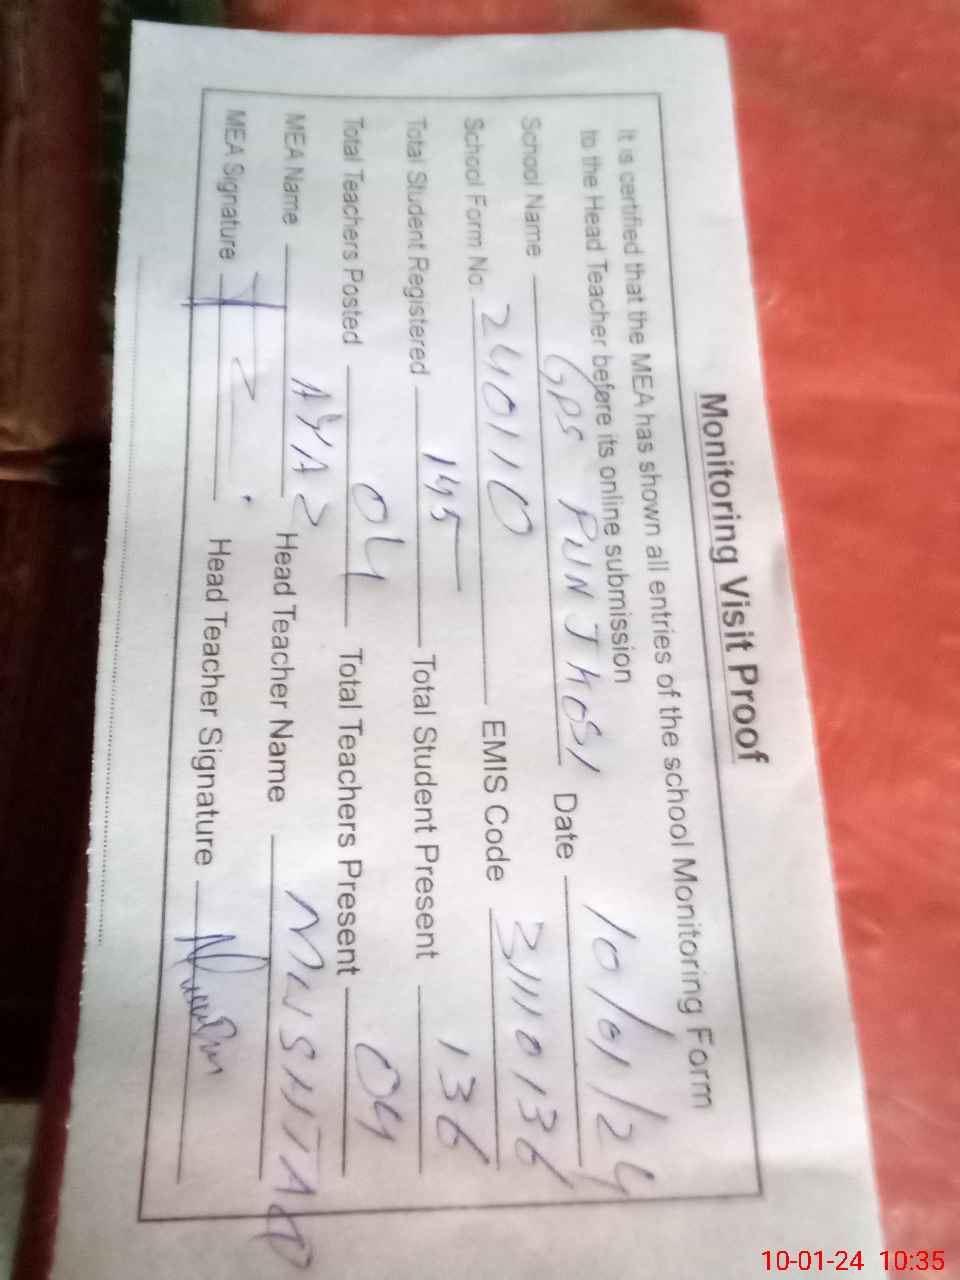 Monitoring Visit Proof
It is certified that the MEA has shown all entries of the school Monitoring Form
to the Head Teacher before its online submission
School Name GPS PUNJHOSI Date 10/01/24
School Form No. 240110 EMIS Code 31110136
Total Student Registered 145 Total Student Present 136
Total Teachers Posted 04 Total Teachers Present 04
MEA Name AYAZ Head Teacher Name MUSHTAQ
MEA Signature Head Teacher Signature
10-01-24 10:35